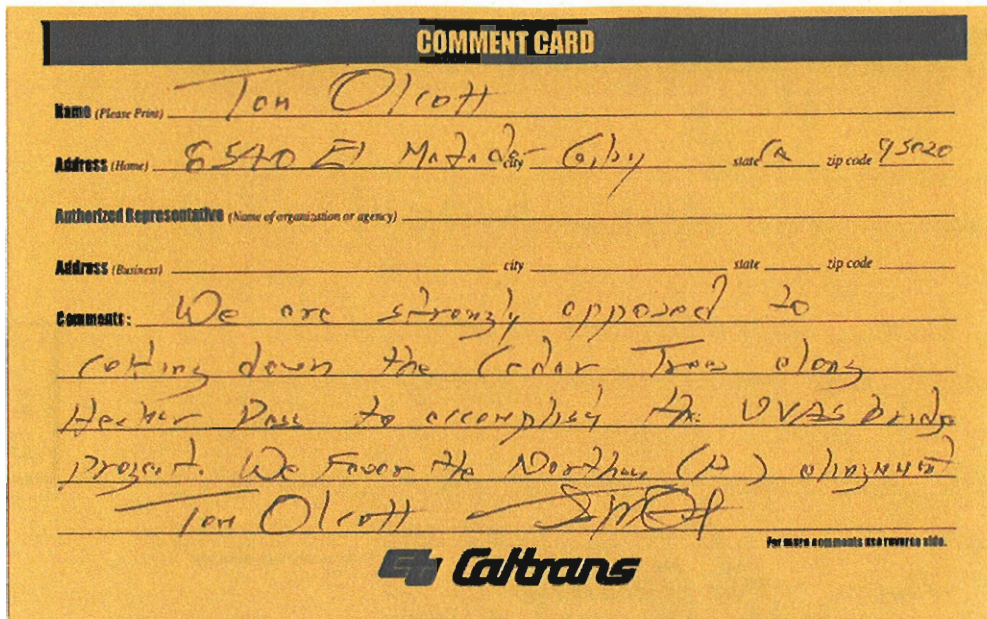 COMMENT CARD
Name (Please Print) Tom Olcott
Address (Home) 6540 El Matador city Gilroy state Ca zip code 95020
Authorized Representative (Name of organization or agency)
Address (Business) city state zip code
Comments: We are strongly opposed to
cutting down the Cedar Trees along
Hecker Pass to accomplish the UVAS bridge
project. We Favor the Northern (A) alignment
Tom Olcott
For more comments use reverse side.
Caltrans